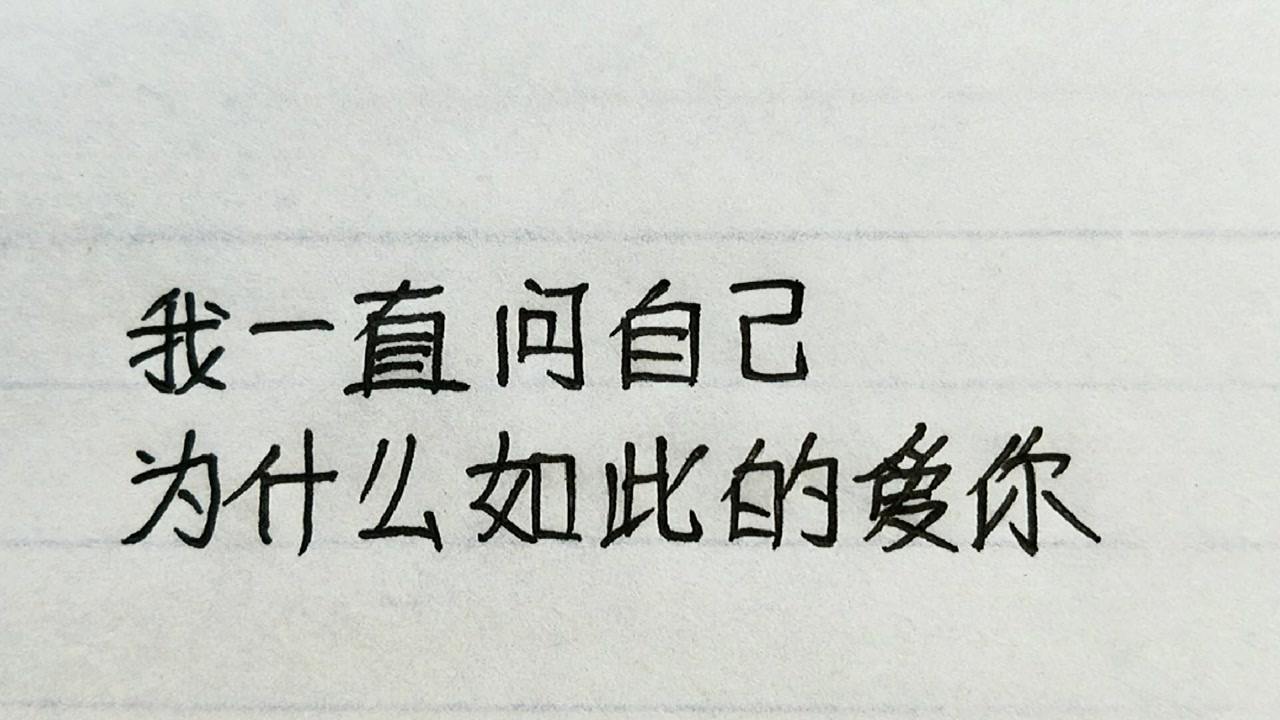 我一直问自己
为什么如此的爱你